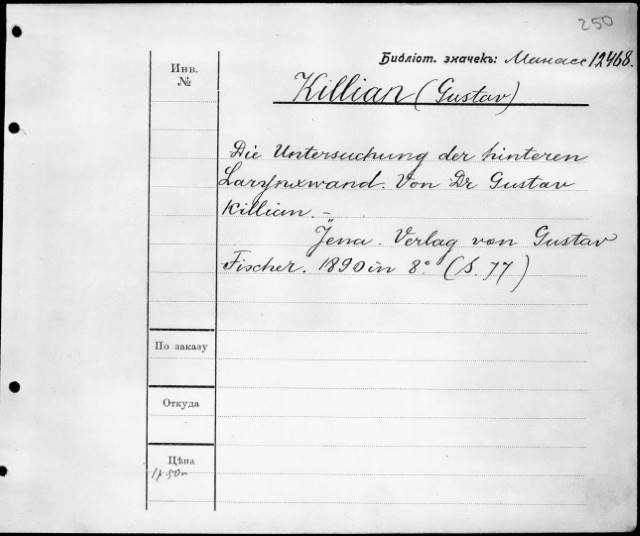 250
Библіот. значекъ: Манассе 12468.
Инв.
№
Killian (Gustav)
Die Untersuchung der hinteren
Larynxwand. Von Dr Gustav
Killian. –
Jena. Verlag von Gustav
Fischer. 1890 in 8° (S. 77)
По заказу
Откуда
Цѣна